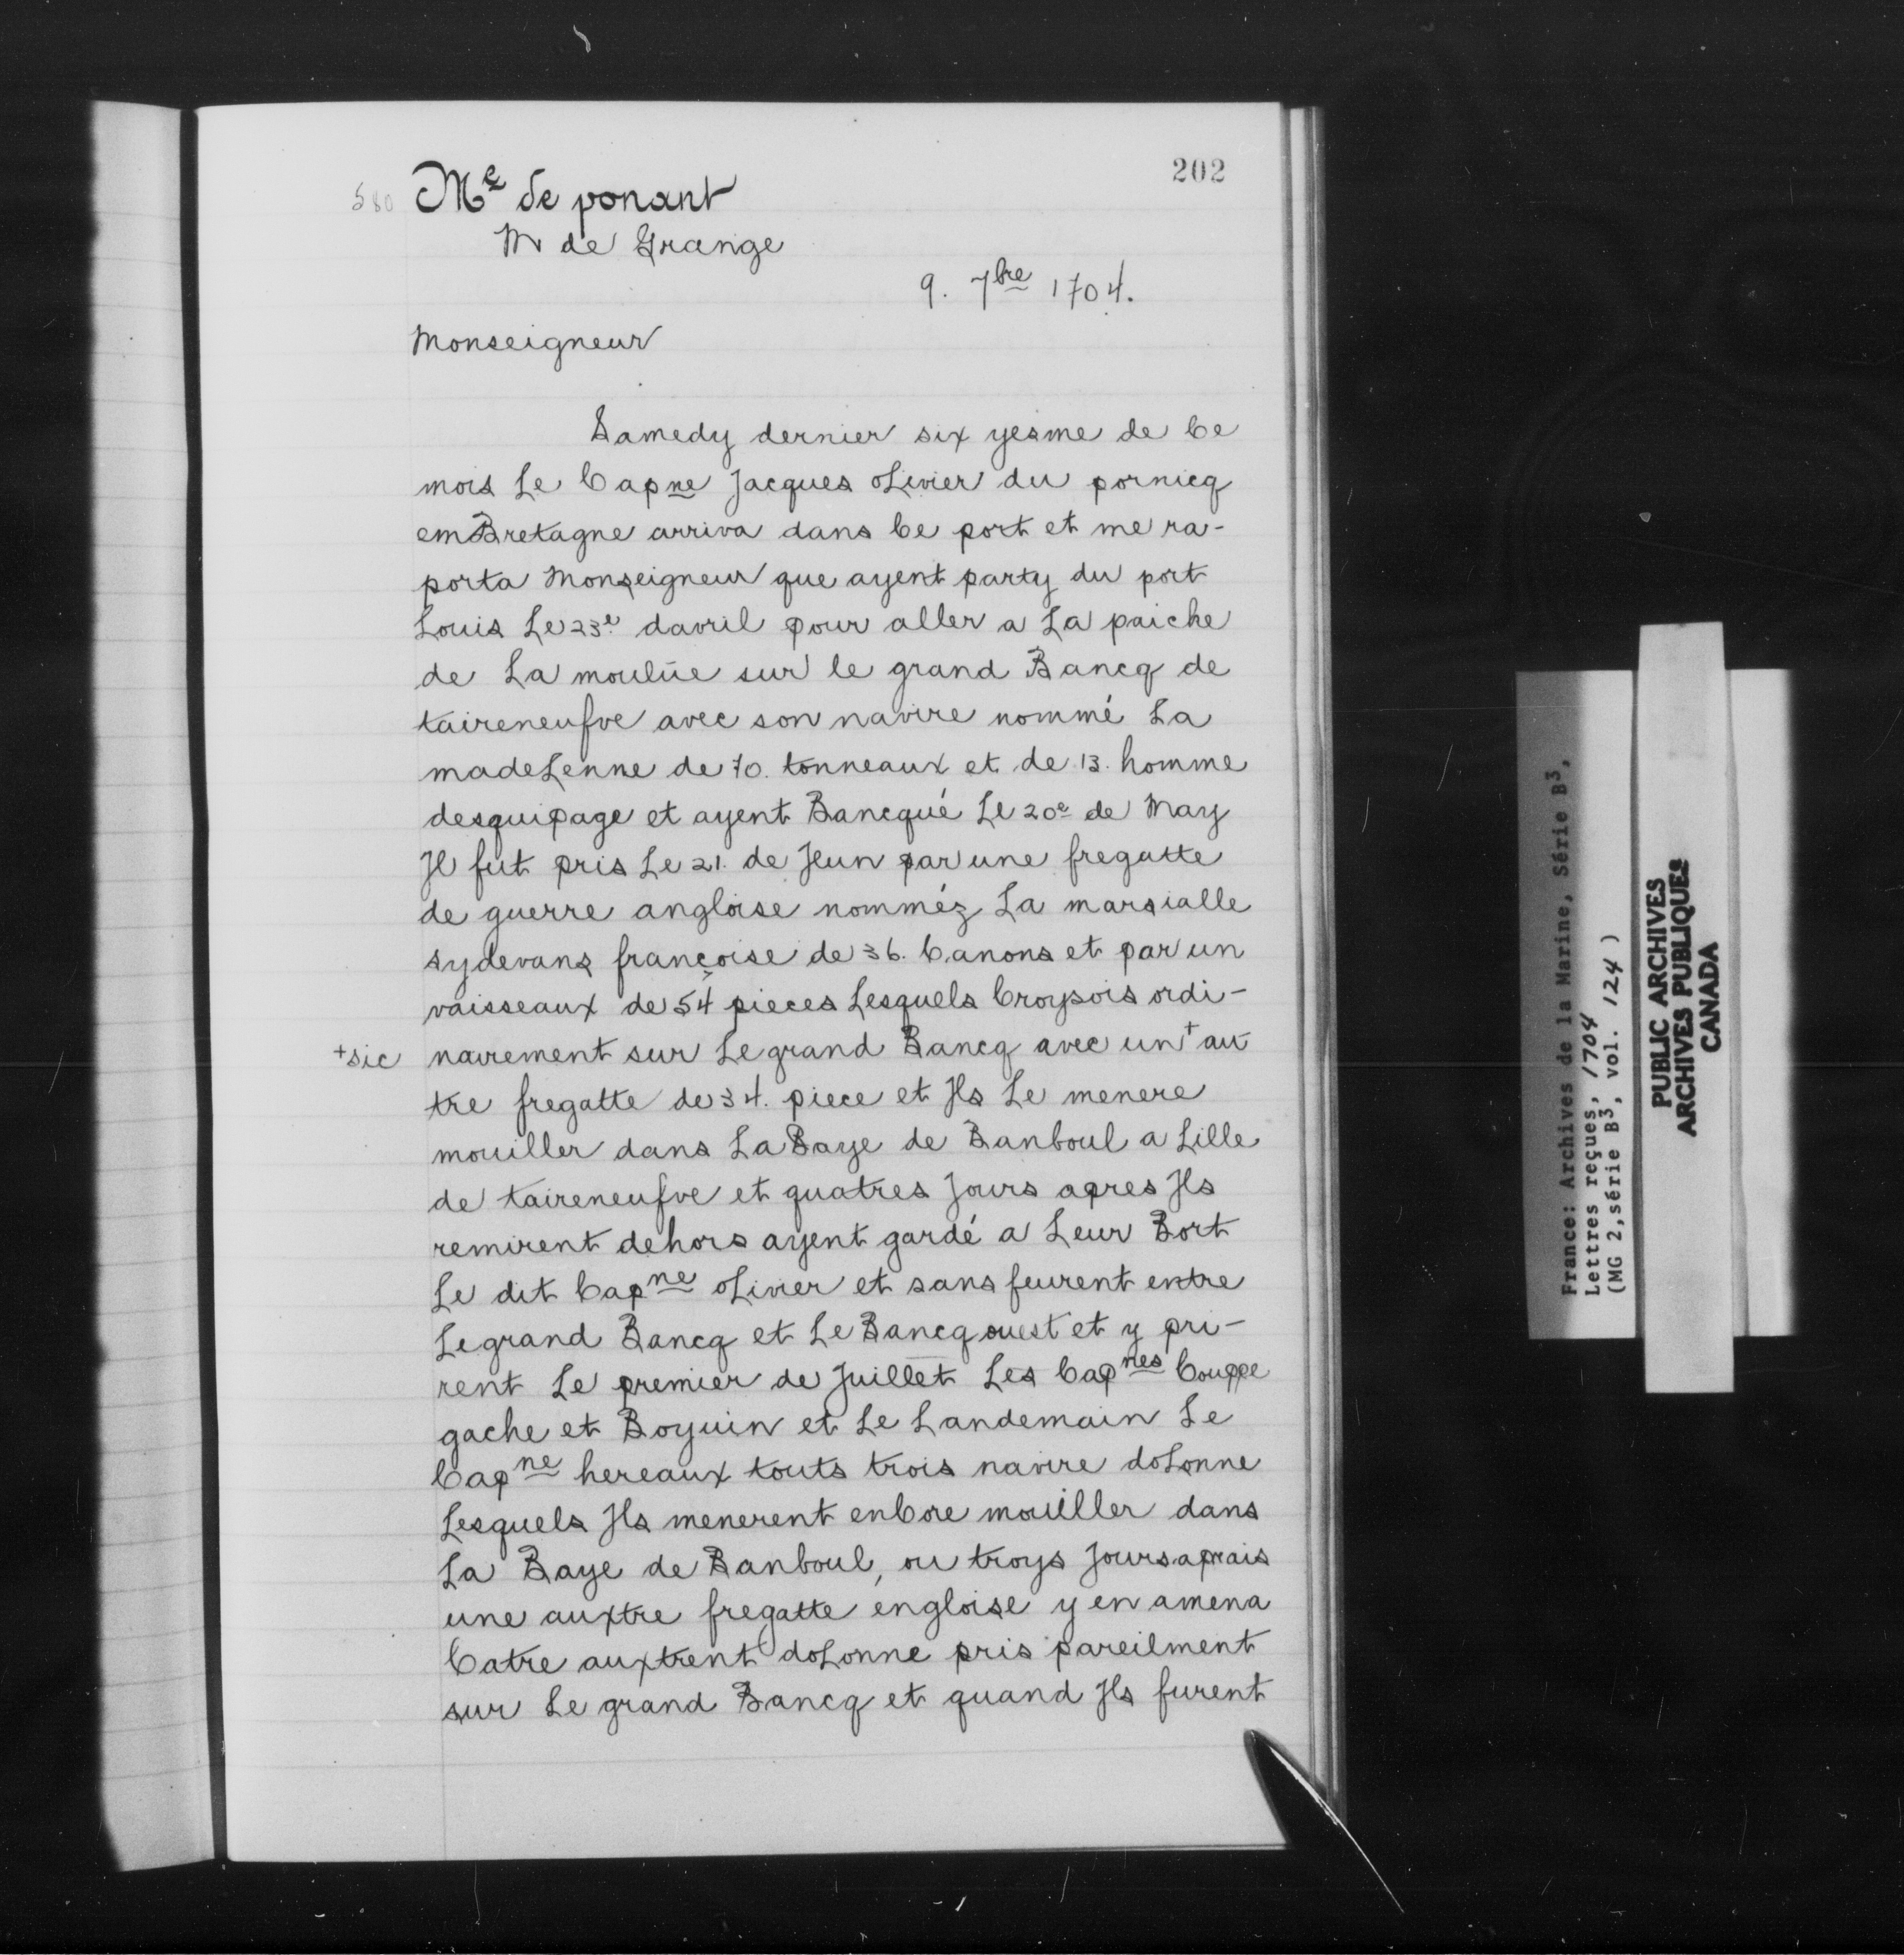 202
580 Me de ponant
Mr de Grange
9. 7bre 1704.
Monseigneur
Samedy dernier six yesme de Ce
mois Le Capne Jacques oLivier du pornicq
em Bretagne arriva dans Ce port et me ra-
porta Monseigneur que ayent party du port
Louis Le 23e davril pour aller a La paiche
de La moulüe sur le grand Bancq de
taireneufve avec son navire nommé La
madeLenne de 70. tonneaux et de 13. homme
desquipage et ayent Bancqué Le 20e de May
Jl fut pris Le 21. de Jeun par une fregatte
de guerre angloise nomméz La marsialle
sydevans françoise de 36. Canons et par un
vaisseaux de 54 pieces Lesquels Croysois ordi-
+sic nairement sur Le grand Bancq avec un+ au
tre fregatte de 34. piece et Jls Le menere
mouiller dans La Baye de Banboul a Lille
de taireneufve et quatres Jours apres Jls
remirent dehors ayent gardé a Leur Bort
Le dit Capne oLivier et sans feurent entre
Le grand Bancq et Le Bancq ouest et y pri-
rent Le premier de Juillet Les Capnes Couppe
gache et Boyuin et Le Landemain Le
Capne hereaux touts trois navire doLonne
Lesquels Jls menerent enCore mouiller dans
La Baye de Banboul, ou troys Jours aprais
une auxtre fregatte engloise y en amena
Catre auxtrent doLonne pris pareilment
sur Le grand Bancq et quand Jls furent
France: Archives de la Marine, Série B3,
Lettres reçues, 1704
(MG 2, série B3, vol. 124)
PUBLIC ARCHIVES
ARCHIVES PUBLIQUES
CANADA